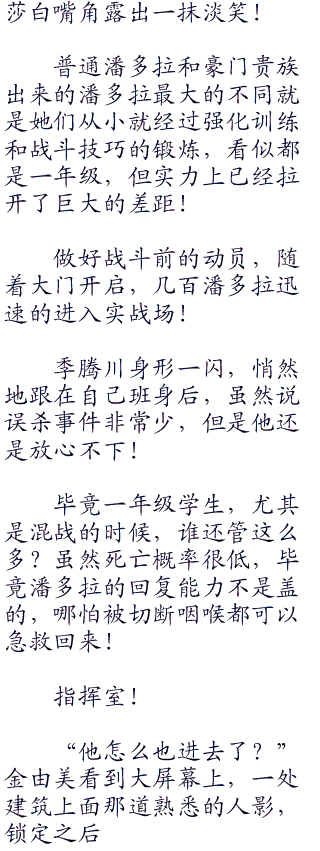 莎白嘴角露出一抹淡笑！
普通潘多拉和豪门贵族
出来的潘多拉最大的不同就
是她们从小就经过强化训练
和战斗技巧的锻炼，看似都
是一年级，但实力上已经拉
开了巨大的差距！
做好战斗前的动员，随
着大门开启，几百潘多拉迅
速的进入实战场！
季腾川身形一闪，悄然
地跟在自己班身后，虽然说
误杀事件非常少，但是他还
是放心不下！
毕竟一年级学生，尤其
是混战的时候，谁还管这么
多？虽然死亡概率很低，毕
竟潘多拉的回复能力不是盖
的，哪怕被切断咽喉都可以
急救回来！
指挥室！
“他怎么也进去了？”
金由美看到大屏幕上，一处
建筑上面那道熟悉的人影，
锁定之后